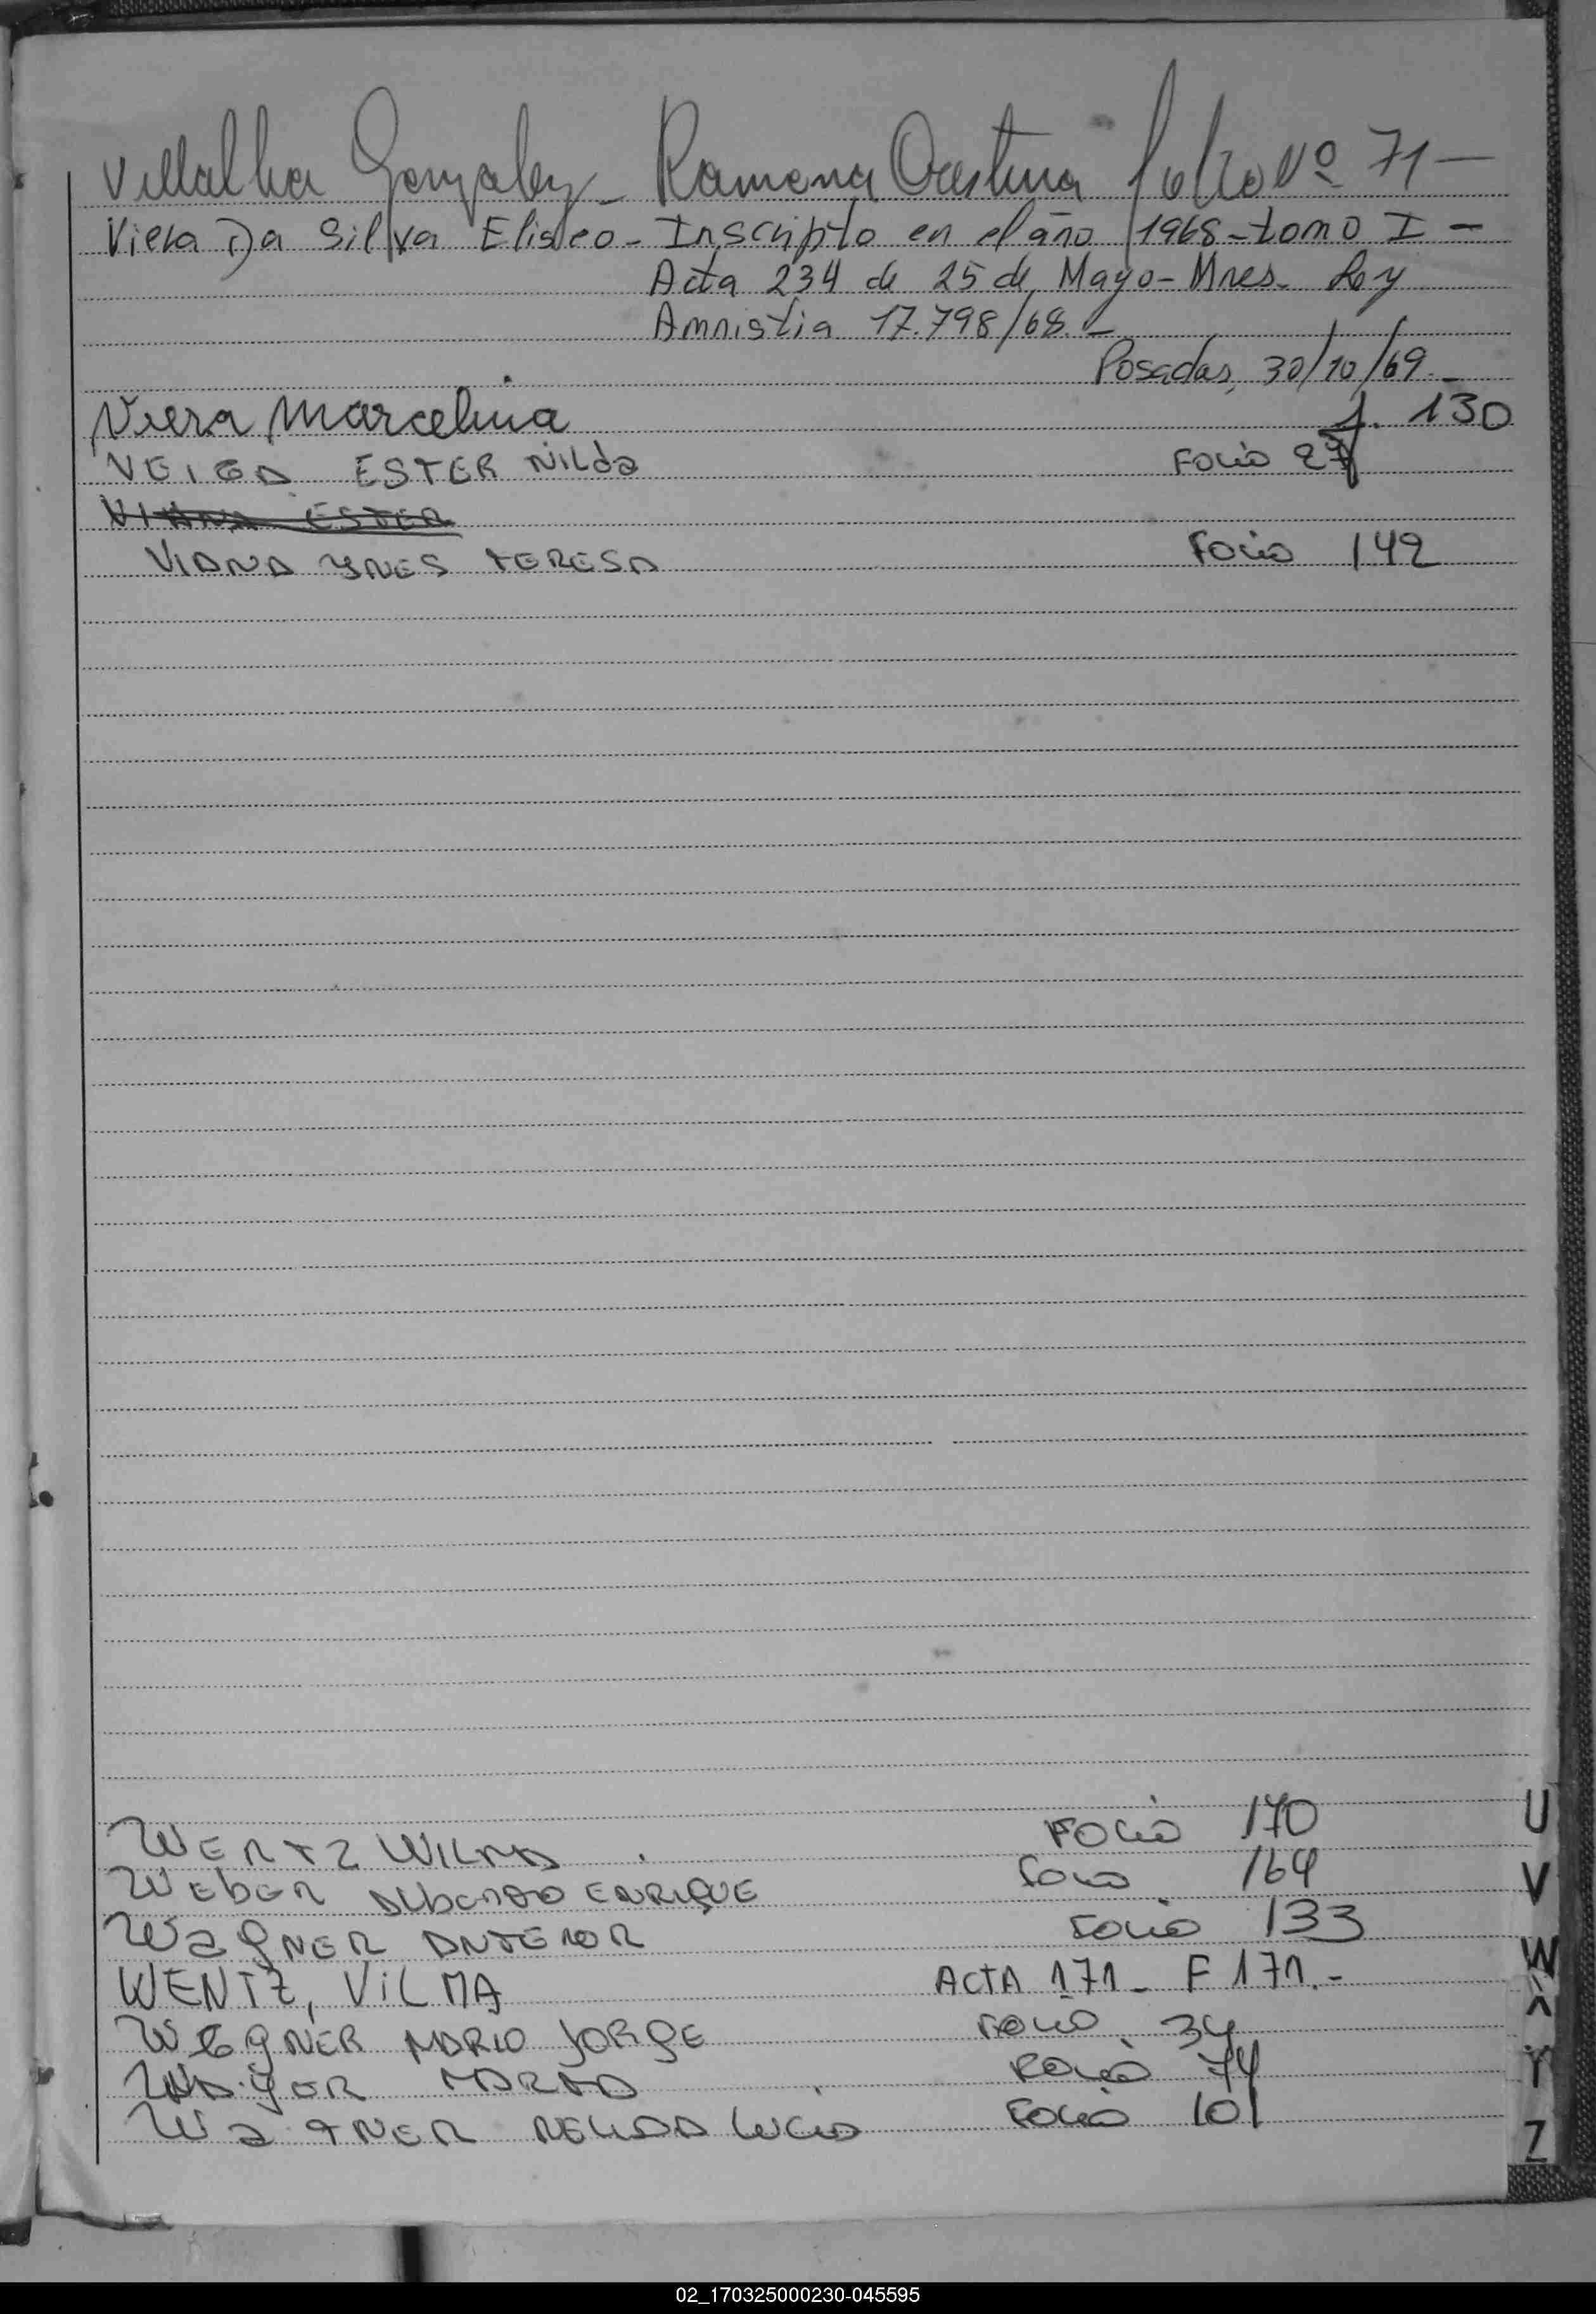 Villalba Gonzalez - Ramona Cristina folio Nº 71 —
Viera Da Silva Eliseo - Inscripto en el año 1968 - tomo I -
Acta 234 de 25 de Mayo - Mnes. Ley
Amnistia 17.798/68. -
Posadas, 30/10/69. -
Viera Marcelina f. 130
VEIGA ESTER NILda Folio 27
VIANA ESTER
VIANA YNES TERESA Folio 142
WERTZ WILMA Folio 170
WEbER ALbERTO ENRIQUE Folio 164
WagNER ANTENOR Folio 133
WENTZ, VILMA ACTA 171 - F 171. -
WEgNER MARIO JORGE Folio 34
MARTA Folio 74
WagNER NELIDA LUCIA Folio 101
U
V
W
X
Y
Z
02_170325000230-045595